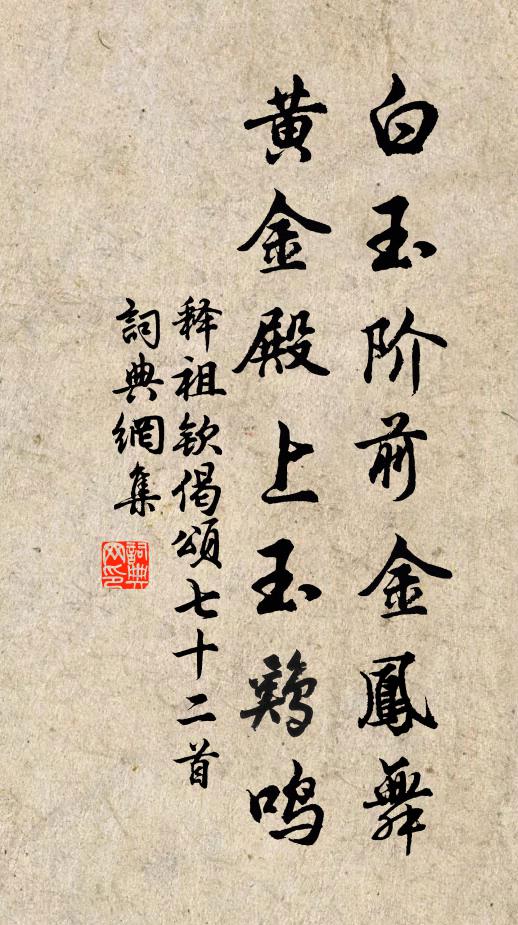 白玉阶前金鳳舞
黄金殿上玉鷄鳴
释祖钦偈頌七十二首
詞典網集
詞典网印